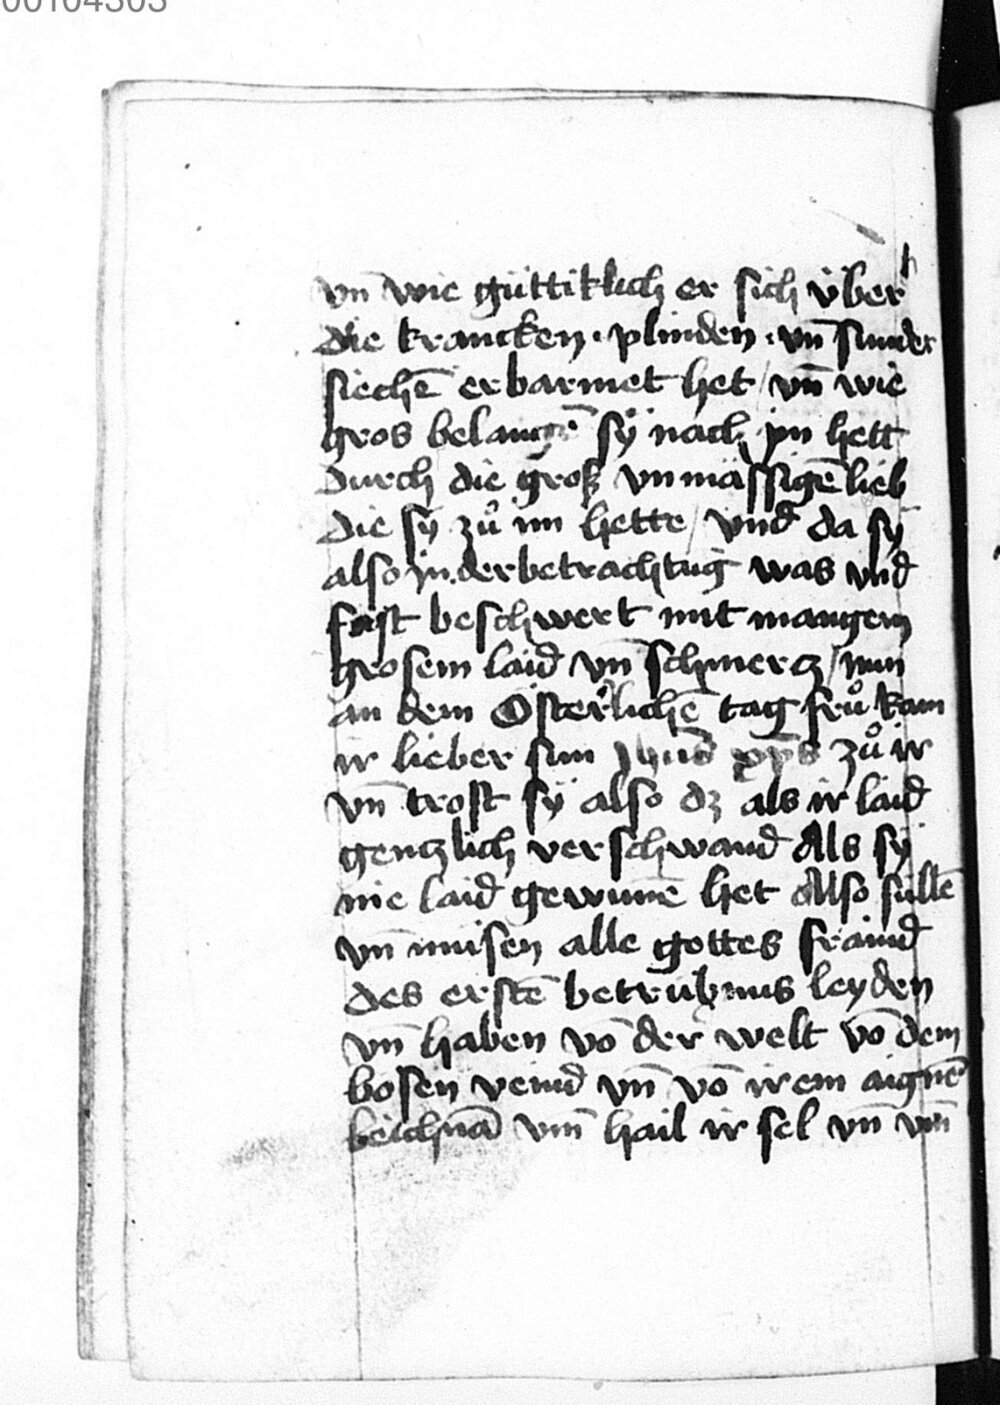 00104303
vn̄ wie güttiklich er sich v̈ber
die krancken · plinden · vn̄ sunder
siechē erbarmet het / vn̄ wie
gros belangē sÿ nach jm hett
durch die groß vnmässigē lieb
die sÿ zů im hette / vnd da sÿ
also jn der betrachtūg was vnd
fast beschwert mit mangem
grosem laid vn̄ schmercz / nun
an dem Österlichē tag frů kam
ir lieber sun Jhūs xp̄s zů ir
vn̄ trost sÿ also dʒ als ir laid
genczlich verschwand Als sÿ
nie laid gewunē het Also süllē
vn̄ müsen alle gottes fraind
des erstē betrübnus leyden
vn̄ haben vō der welt vō dem
bosen veind vn̄ vō irem aignē
leichnā vm̄ hail ir sel vn̄ vm̄